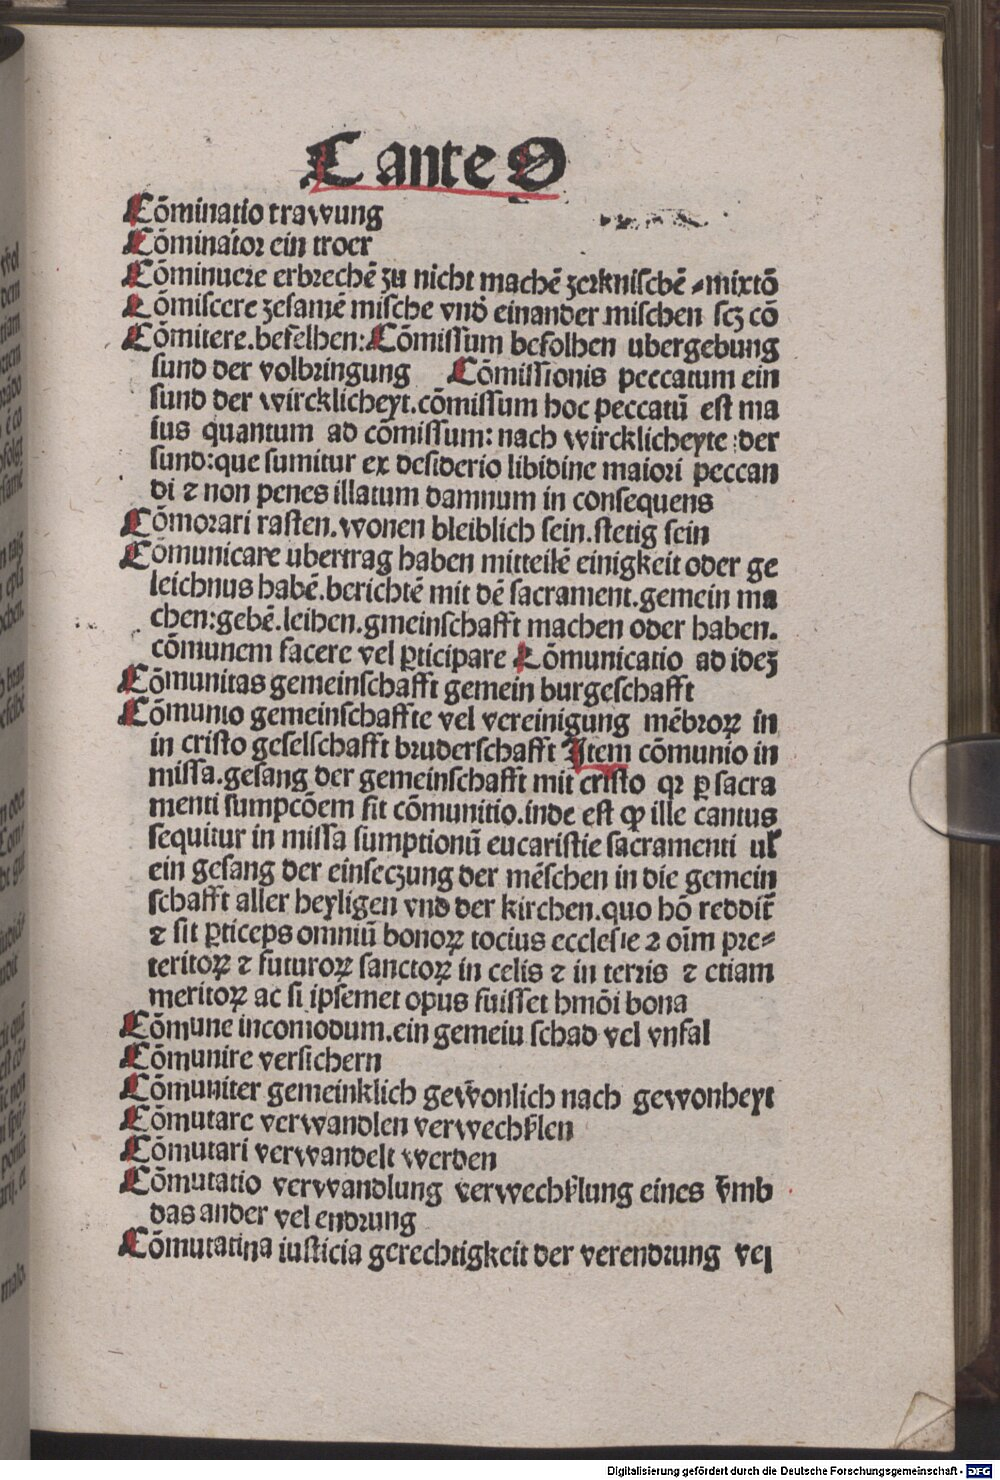 C ante O
Cōminatio trawung
Cōminator ein troer
Cōminuere erbrechē zu nicht machē zerknischē ⸗mixtō
Cōmiscere zesamē mische vnd einander mischen scz cō
Cōmitere.befelhen: Cōmissum befolhen ubergebung
sund der volbringung Cōmissionis peccatum ein
sund der wircklicheyt.cōmissum hoc peccatū est ma
ius quantum ad cōmissum: nach wircklicheyte der
sund:que sumitur ex desiderio libidine maiori peccan
di ⁊ non penes illatum damnum in consequens
Cōmorari rasten.wonen bleiblich sein.stetig sein
Cōmunicare ubertrag haben mitteilē einigkeit oder ge
leichnus habē.berichtē mit dē sacrament.gemein ma
chen:gebē.leihen.gmeinschafft machen oder haben.
cōmunem facere vel ꝑticipare Cōmunicatio ad ideꝫ
Cōmunitas gemeinschafft gemein burgeschafft
Cōmunio gemeinschaffte vel vereinigung mēbroꝝ in
in cristo geselschafft bruderschafft Item cōmunio in
missa.gesang der gemeinschafft mit cristo qꝛ ꝑ sacra
menti sumpcōem fit cōmunitio.inde est ꝙ ille cantus
sequitur in missa sumptionū eucaristie sacramenti ul̕
ein gesang der einseczung der mēschen in die gemein
schafft aller heyligen vnd der kirchen.quo hō reddit̄
⁊ fit ꝑticeps omniū bonoꝝ tocius ecclesie ⁊ oīm pre⸗
teritoꝝ ⁊ futuroꝝ sanctoꝝ in celis ⁊ in terris ⁊ etiam
meritoꝝ ac si ipsemet opus fuisset hmōi bona
Cōmune incomodum.ein gemeiu schad vel vnfal
Cōmunire versichern
Cōmuniter gemeinklich gew̄onlich nach gewonheyt
Cōmutare verwandlen verwechslen
Cōmutari verwandelt werden
Cōmutatio verwandlung verwechslung eines v̄mb
das ander vel endrung
Cōmutatina iusticia gerechtigkeit der verendrung vel
Digitalisierung gefördert durch die Deutsche Forschungsgemeinschaft - DFG